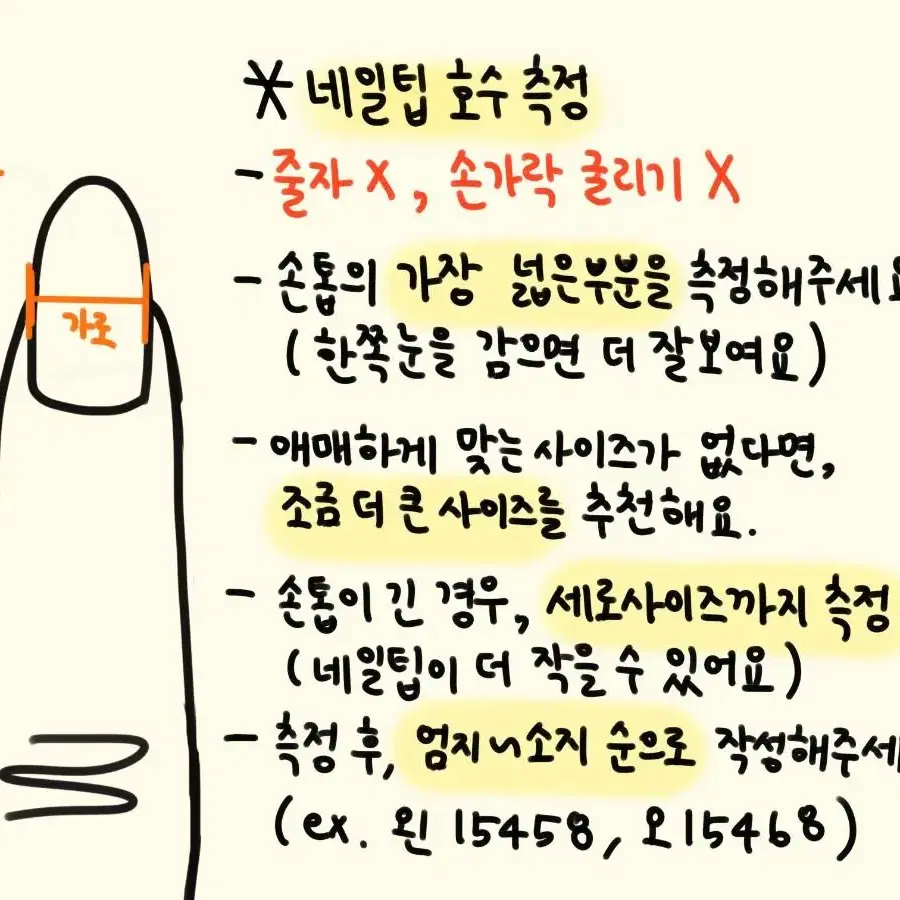 * 네일팁 호수 측정
- 줄자 X, 손가락 굴리기 X
- 손톱의 가장 넓은부분을 측정해주세요
(한쪽눈을 감으면 더 잘보여요)
가로
- 애매하게 맞는 사이즈가 없다면,
조금 더 큰 사이즈를 추천해요.
- 손톱이 긴 경우, 세로사이즈까지 측정
(네일팁이 더 작을 수 있어요)
- 측정 후, 엄지~소지 순으로 작성해주세
(ex. 왼 15458, 오 15468)